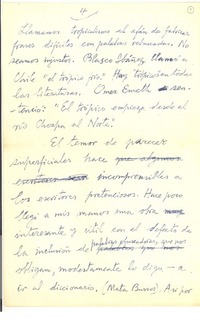 4
1
Llamamos tropicalismo el afán de fabricar
frases difíciles con palabras rebuscadas. No
seamos injustos. Blasco Ibáñez llamó a
Chile "el trópico frío." Hay tropicalismo en todas
las literaturas. Omer Emeth sen-
tenció: "El trópico empieza desde el
río Choapa al Norte."
El temor de parecer
superficiales hace que algunos
escritores sean incomprensibles a
los escritores pretenciosos. Hace poco
llegó a mis manos una obra muy
interesante y útil con el defecto de
la inclusión de palabras que nos
obligan, modestamente lo digo - a
ir al diccionario. (Mata Burros). Así por